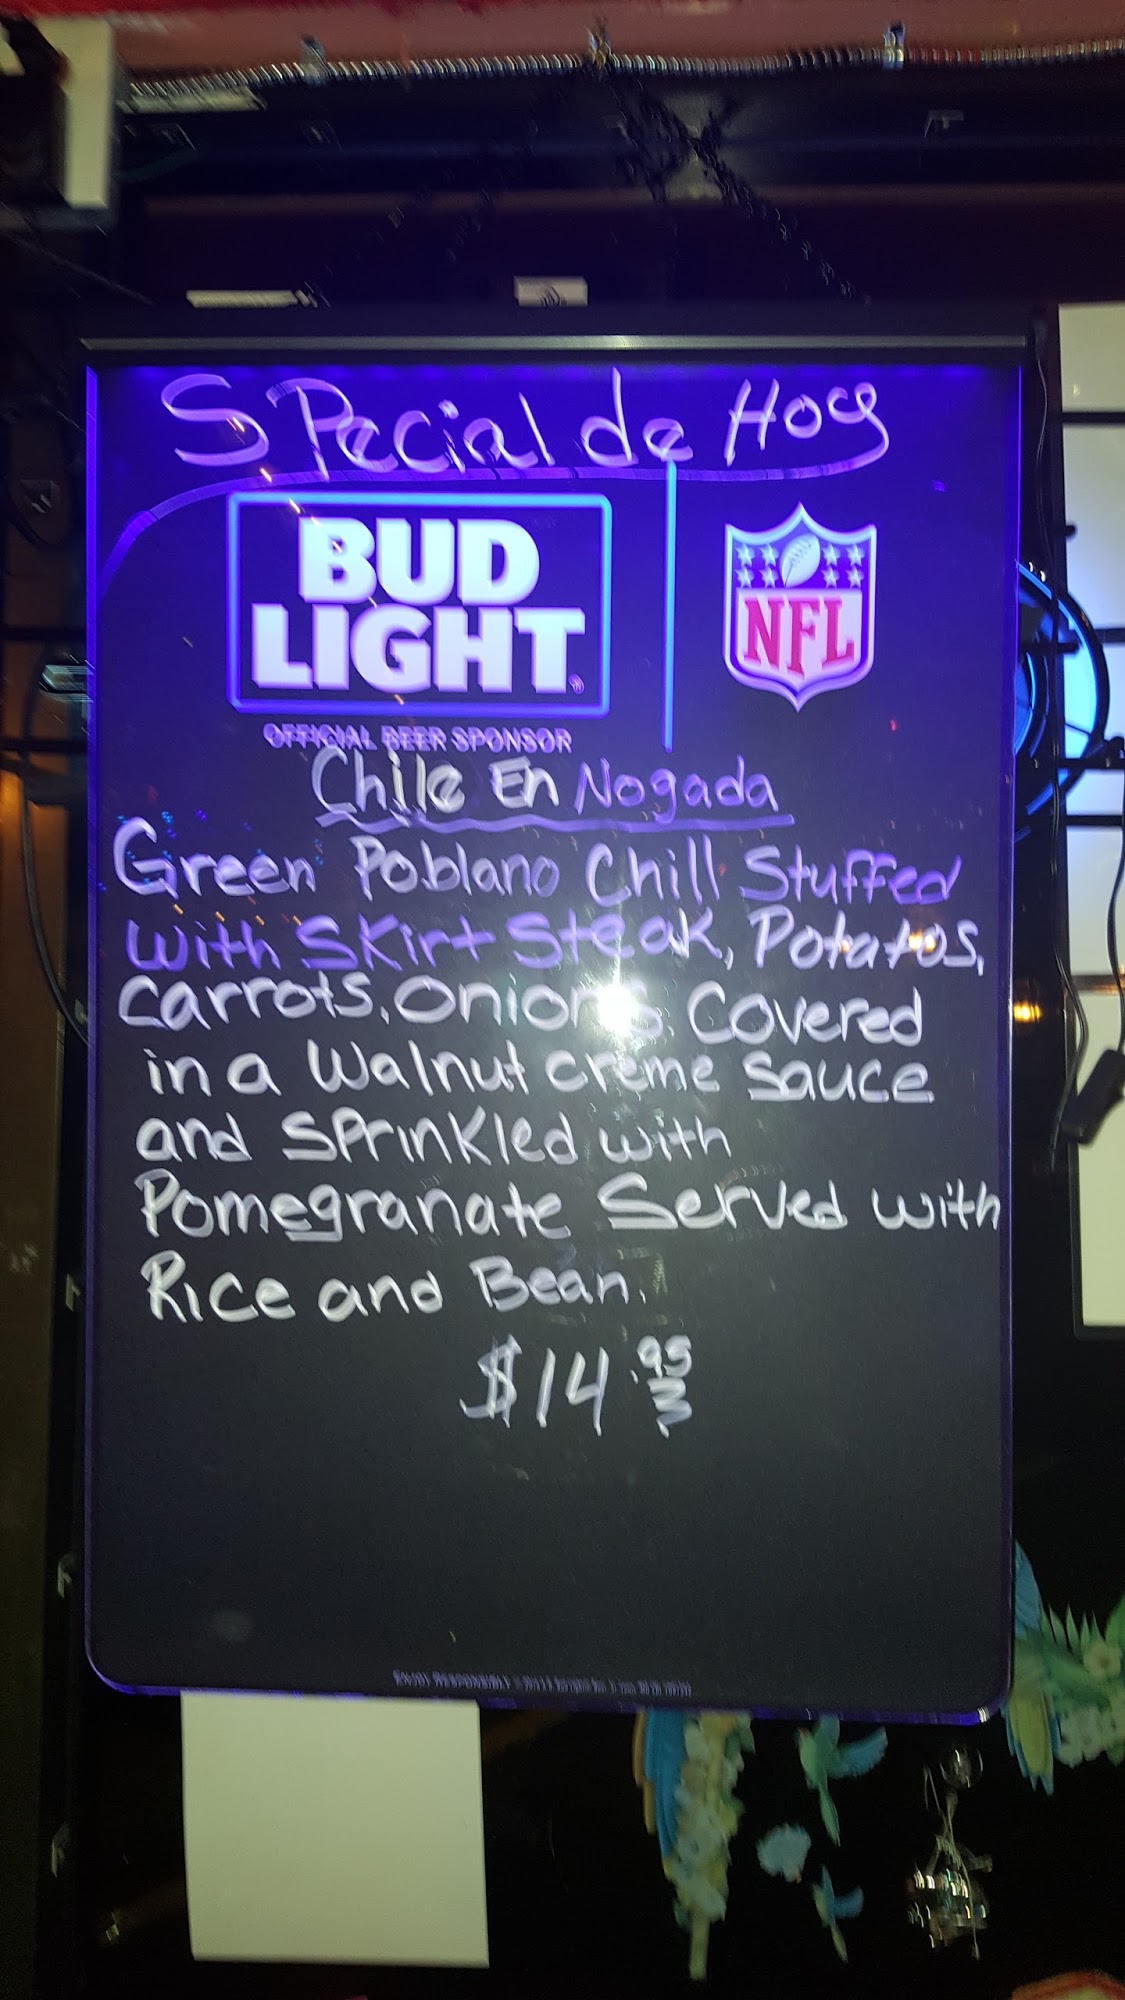 SPecial de Hoy
BUD
LIGHT
NFL
OFFICIAL BEER SPONSOR
Chile En Nogada
Green Poblano Chill Stuffed
with Skirt Steak, Potatos,
Carrots, Onions, Covered
in a Walnut creme Sauce
and Sprinkled with
Pomegranate Served with
Rice and Bean.
$14.95
ENJOY RESPONSIBLY